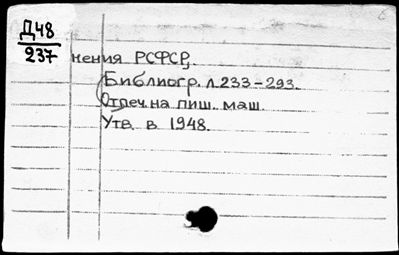 Д48
237
нения РСФСР.
Библиогр. л.233-293.
Отпеч. на пиш. маш.
Утв. в 1948.